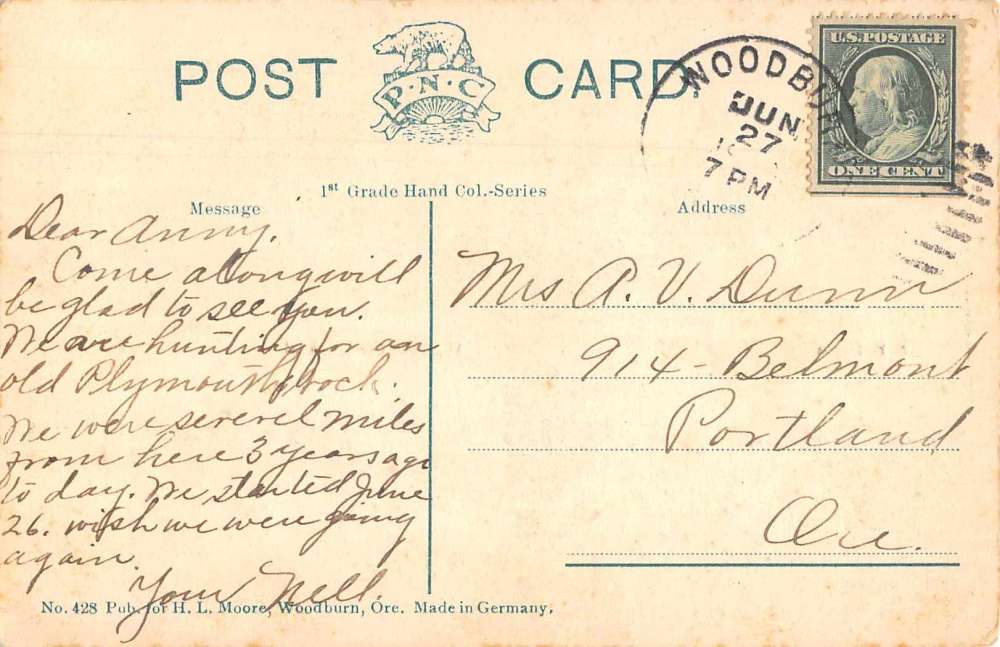 POST CARD
P·N·C
U.S. POSTAGE
ONE CENT
WOODBU
JUN
27
7 PM
1st Grade Hand Col.-Series
Message
Address
Dear Anny.
Come along will
be glad to see you.
We are hunting for an
old Plymouth rock.
We were severel miles
from here 3 years ago
to day. We started June
26. wish we were going
again.
Your Nell.
Mrs A. V. Dunn
914 - Belmont
Portland
Ore.
No. 428 Pub. for H. L. Moore, Woodburn, Ore. Made in Germany.